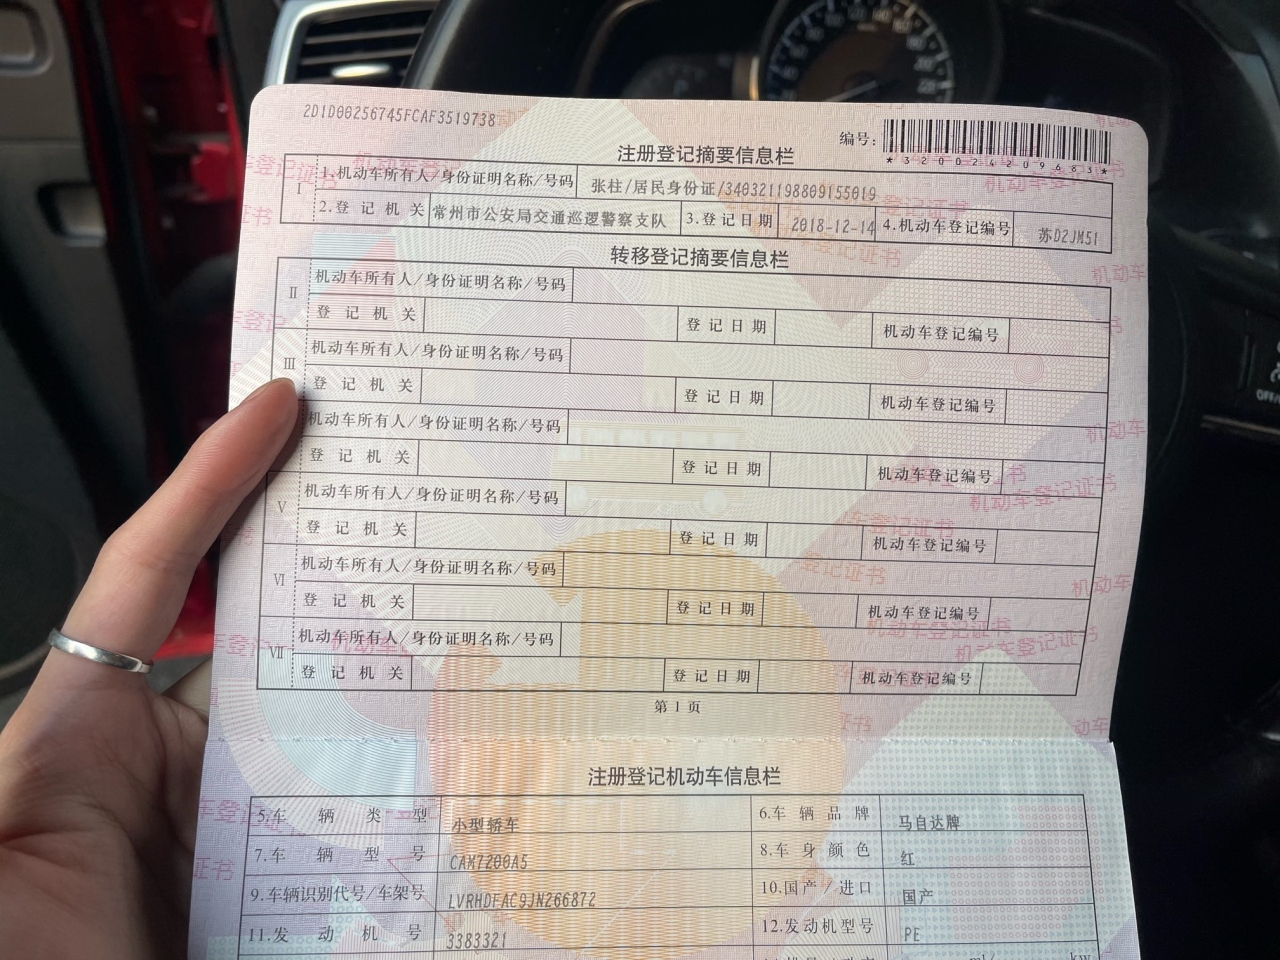 2D1D00256745FCAF3519738
编号:
*320024209683*
注册登记摘要信息栏
I 1.机动车所有人/身份证明名称/号码 张柱/居民身份证/340321198809155019
2.登记机关 常州市公安局交通巡逻警察支队 3.登记日期 2018-12-14 4.机动车登记编号 苏D2JM51
转移登记摘要信息栏
II 机动车所有人/身份证明名称/号码
登记机关 登记日期 机动车登记编号
III 机动车所有人/身份证明名称/号码
登记机关 登记日期 机动车登记编号
机动车所有人/身份证明名称/号码
登记机关 登记日期 机动车登记编号
V 机动车所有人/身份证明名称/号码
登记机关 登记日期 机动车登记编号
VI 机动车所有人/身份证明名称/号码
登记机关 登记日期 机动车登记编号
VII 机动车所有人/身份证明名称/号码
登记机关 登记日期 机动车登记编号
第1页
注册登记机动车信息栏
5.车辆类型 小型轿车 6.车辆品牌 马自达牌
7.车辆型号 CAM7200A5 8.车身颜色 红
9.车辆识别代号/车架号 LVRHDFAC9JN266872 10.国产/进口 国产
11.发动机号 3383321 12.发动机型号 PE